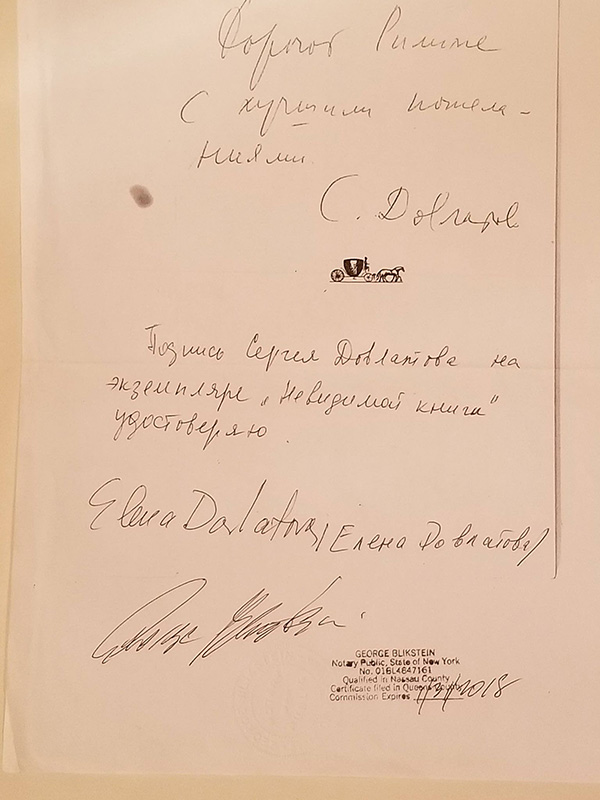 Дорогой Римме
С лучшими пожела-
ниями
С. Довлатов
Подпись Сергея Довлатова на
экземпляре „Невидимой книги"
удостоверяю.
Elena Dovlatova /Елена Довлатова/
GEORGE BLIKSTEIN
Notary Public, State of New York
No. 01BL4647161
Qualified in Nassau County
Certificate filed in Queens County
Commission Expires 2018